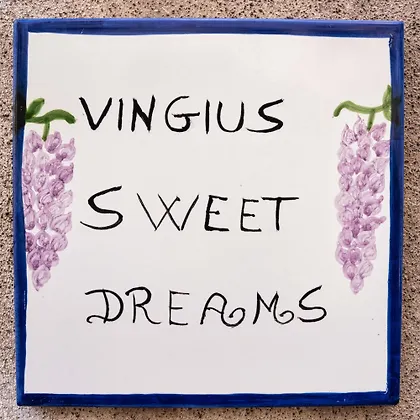 VINGIUS
SWEET
DREAMS